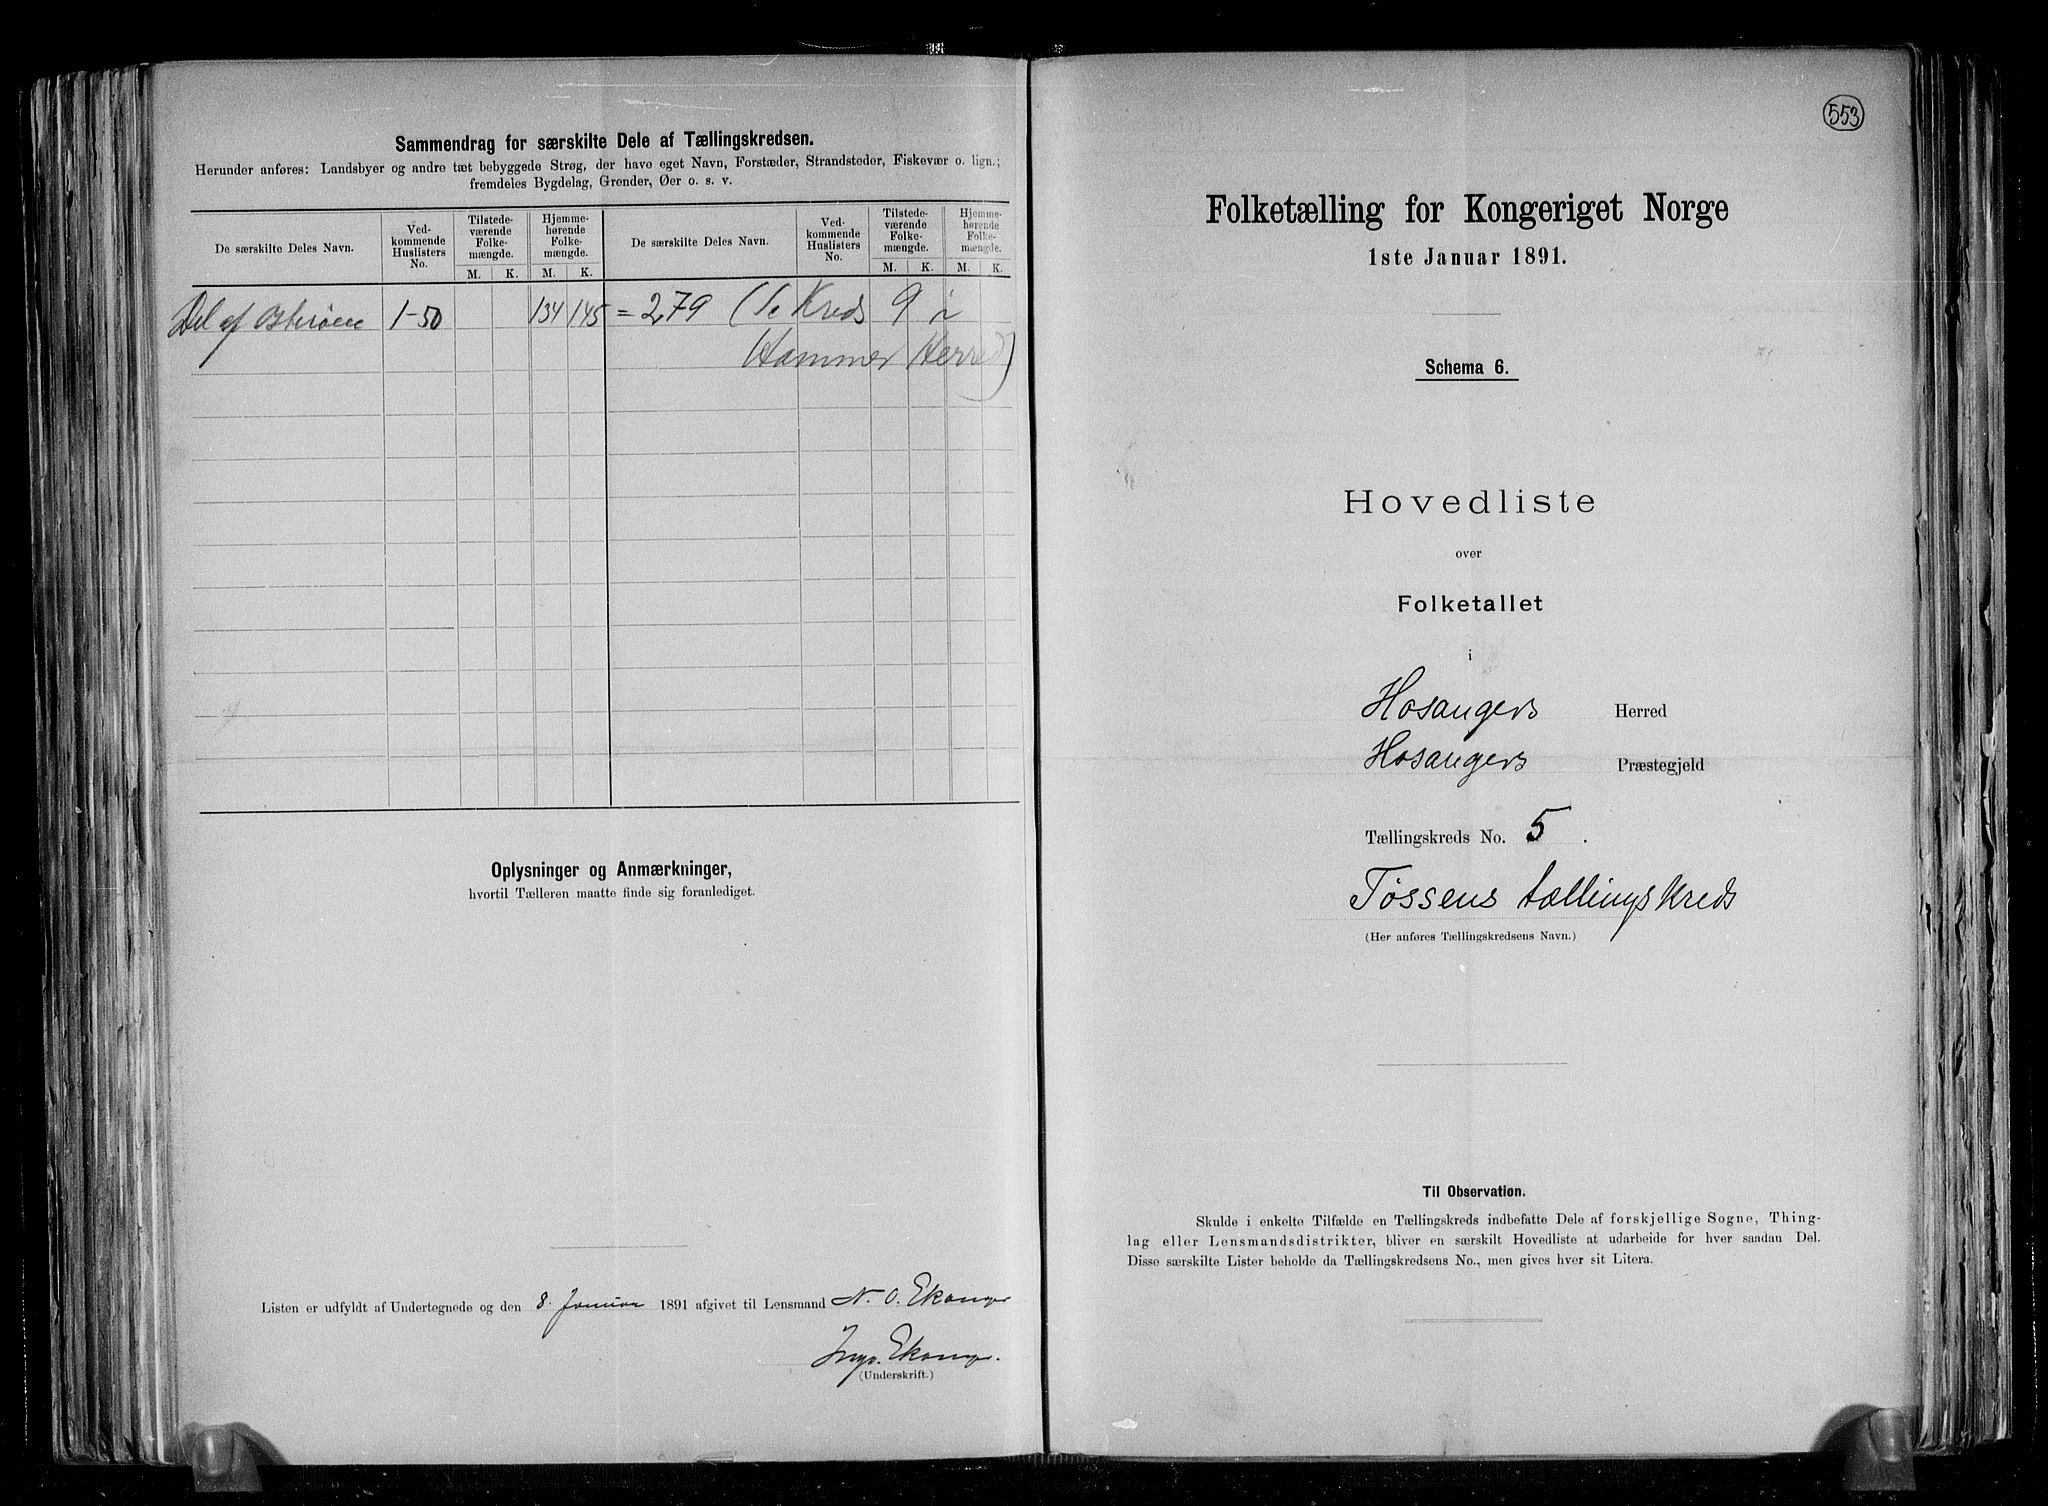 Sammendrag for særskilte Dele af Tællingskredsen.
Herunder anføres: Landsbyer og andre tæt bebyggede Strøg, der have eget Navn, Forstæder, Strandsteder, Fiskevær o. lign.;
fremdeles Bygdelag, Grender, Øer o. s. v.
De særskilte Deles Navn.
Ved-
kommende
Huslisters
No.
Tilstede-
værende
Folke-
mængde.
M. K.
Hjemme-
hørende
Folke-
mængde.
M. K.
De særskilte Deles Navn.
Ved-
kommende
Huslisters
No.
Tilstede-
værende
Folke-
mængde.
M. K.
Hjemme-
hørende
Folke-
mængde.
M. K.
Del af Osterøen 1-50 134 145 = 279 (Se Kreds 9 i
Hammer Herred)
Oplysninger og Anmærkninger,
hvortil Tælleren maatte finde sig foranlediget.
Listen er udfyldt af Undertegnede og den 8. Januar 1891 afgivet til Lensmand N. O. Ekanger
Ekanger.
(Underskrift.)
553
Folketælling for Kongeriget Norge
1ste Januar 1891.
Schema 6.
Hovedliste
over
Folketallet
i
Hosangers Herred
Hosangers Præstegjeld
Tællingskreds No. 5.
Tøssens tællingskreds
(Her anføres Tællingskredsens Navn.)
Til Observation.
Skulde i enkelte Tilfælde en Tællingskreds indbefatte Dele af forskjellige Sogne, Thing-
lag eller Lensmandsdistrikter, bliver en særskilt Hovedliste at udarbeide for hver saadan Del.
Disse særskilte Lister beholde da Tællingskredsens No., men gives hver sit Litera.